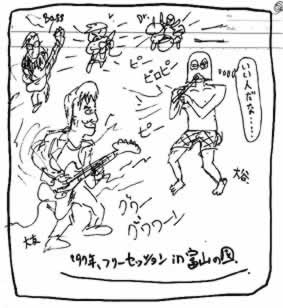 Bass
Dr.
ピ
ピロピー
ピー
いい人だな……
大谷
グワー
グワワーン
'97年、フリーセッション in 富山の図